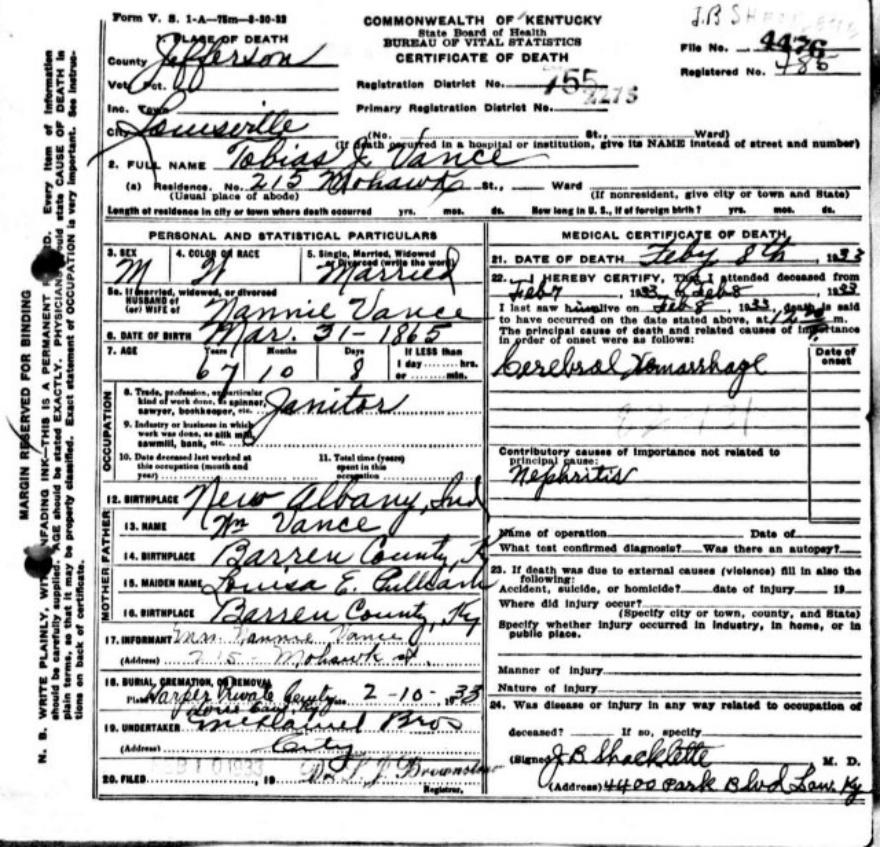 Form V. S. 1-A—75m—8-30-32
J.B
COMMONWEALTH OF KENTUCKY
State Board of Health
BUREAU OF VITAL STATISTICS
CERTIFICATE OF DEATH
File No. 4476
Registered No. 485
Registration District No. 755
Primary Registration District No. 2275
1. PLACE OF DEATH
County Jefferson
Vot. Pct.
Inc. Town
City Louisville
(No. St., Ward)
(If death occurred in a hospital or institution, give its NAME instead of street and number)
2. FULL NAME Tobias J. Vance
(a) Residence. No. 215 Mohawk St., Ward
(Usual place of abode) (If nonresident, give city or town and State)
Length of residence in city or town where death occurred yrs. mos. ds. How long in U. S., if of foreign birth? yrs. mos. ds.
PERSONAL AND STATISTICAL PARTICULARS
3. SEX 4. COLOR OR RACE 5. Single, Married, Widowed
or Divorced (write the word)
M W Married
5a. If married, widowed, or divorced
HUSBAND of
(or) WIFE of Nannie Vance
6. DATE OF BIRTH Mar. 31-1865
7. AGE Years Months Days If LESS than
1 day hrs.
67 10 8 or min.
OCCUPATION
8. Trade, profession, or particular
kind of work done, as spinner,
sawyer, bookkeeper, etc. Janitor
9. Industry or business in which
work was done, as silk mill,
sawmill, bank, etc.
10. Date deceased last worked at
this occupation (month and
year)
11. Total time (years)
spent in this
occupation
12. BIRTHPLACE New Albany, Ind
FATHER
13. NAME Wm Vance
14. BIRTHPLACE Barren County, K
MOTHER
15. MAIDEN NAME Louisa E.
16. BIRTHPLACE Barren County, Ky
17. INFORMANT Mrs. Nannie Vance
(Address) 215 Mohawk St.
18. BURIAL, CREMATION, OR REMOVAL
Place Harper Private Date 2-10-33
19. UNDERTAKER Bros
(Address) City
20. FILED FEB 10 1933, 19
Registrar.
MEDICAL CERTIFICATE OF DEATH
21. DATE OF DEATH Feby 8th, 1933
22. I HEREBY CERTIFY, That I attended deceased from
Feb 7, 1933, Feb 8, 1933
I last saw him alive on Feb 8, 1933, death is said
to have occurred on the date stated above, at 12 m.
The principal cause of death and related causes of importance
in order of onset were as follows:
Date of
onset
Cerebral Hemarrhage
Contributory causes of importance not related to
principal cause:
Nephritis
Name of operation Date of
What test confirmed diagnosis? Was there an autopsy?
23. If death was due to external causes (violence) fill in also the
following:
Accident, suicide, or homicide? date of injury 19
Where did injury occur?
(Specify city or town, county, and State)
Specify whether injury occurred in industry, in home, or in
public place.
Manner of injury
Nature of injury
24. Was disease or injury in any way related to occupation of
deceased? If so, specify
(Signed) J B Shacklette, M. D.
(Address) 4400 Park Blvd Lou. Ky
MARGIN RESERVED FOR BINDING
N. B. WRITE PLAINLY, WITH UNFADING INK—THIS IS A PERMANENT RECORD. Every item of information
should be carefully supplied. AGE should be stated EXACTLY. PHYSICIANS should state CAUSE OF DEATH in
plain terms, so that it may be properly classified. Exact statement of OCCUPATION is very important. See instruc-
tions on back of certificate.